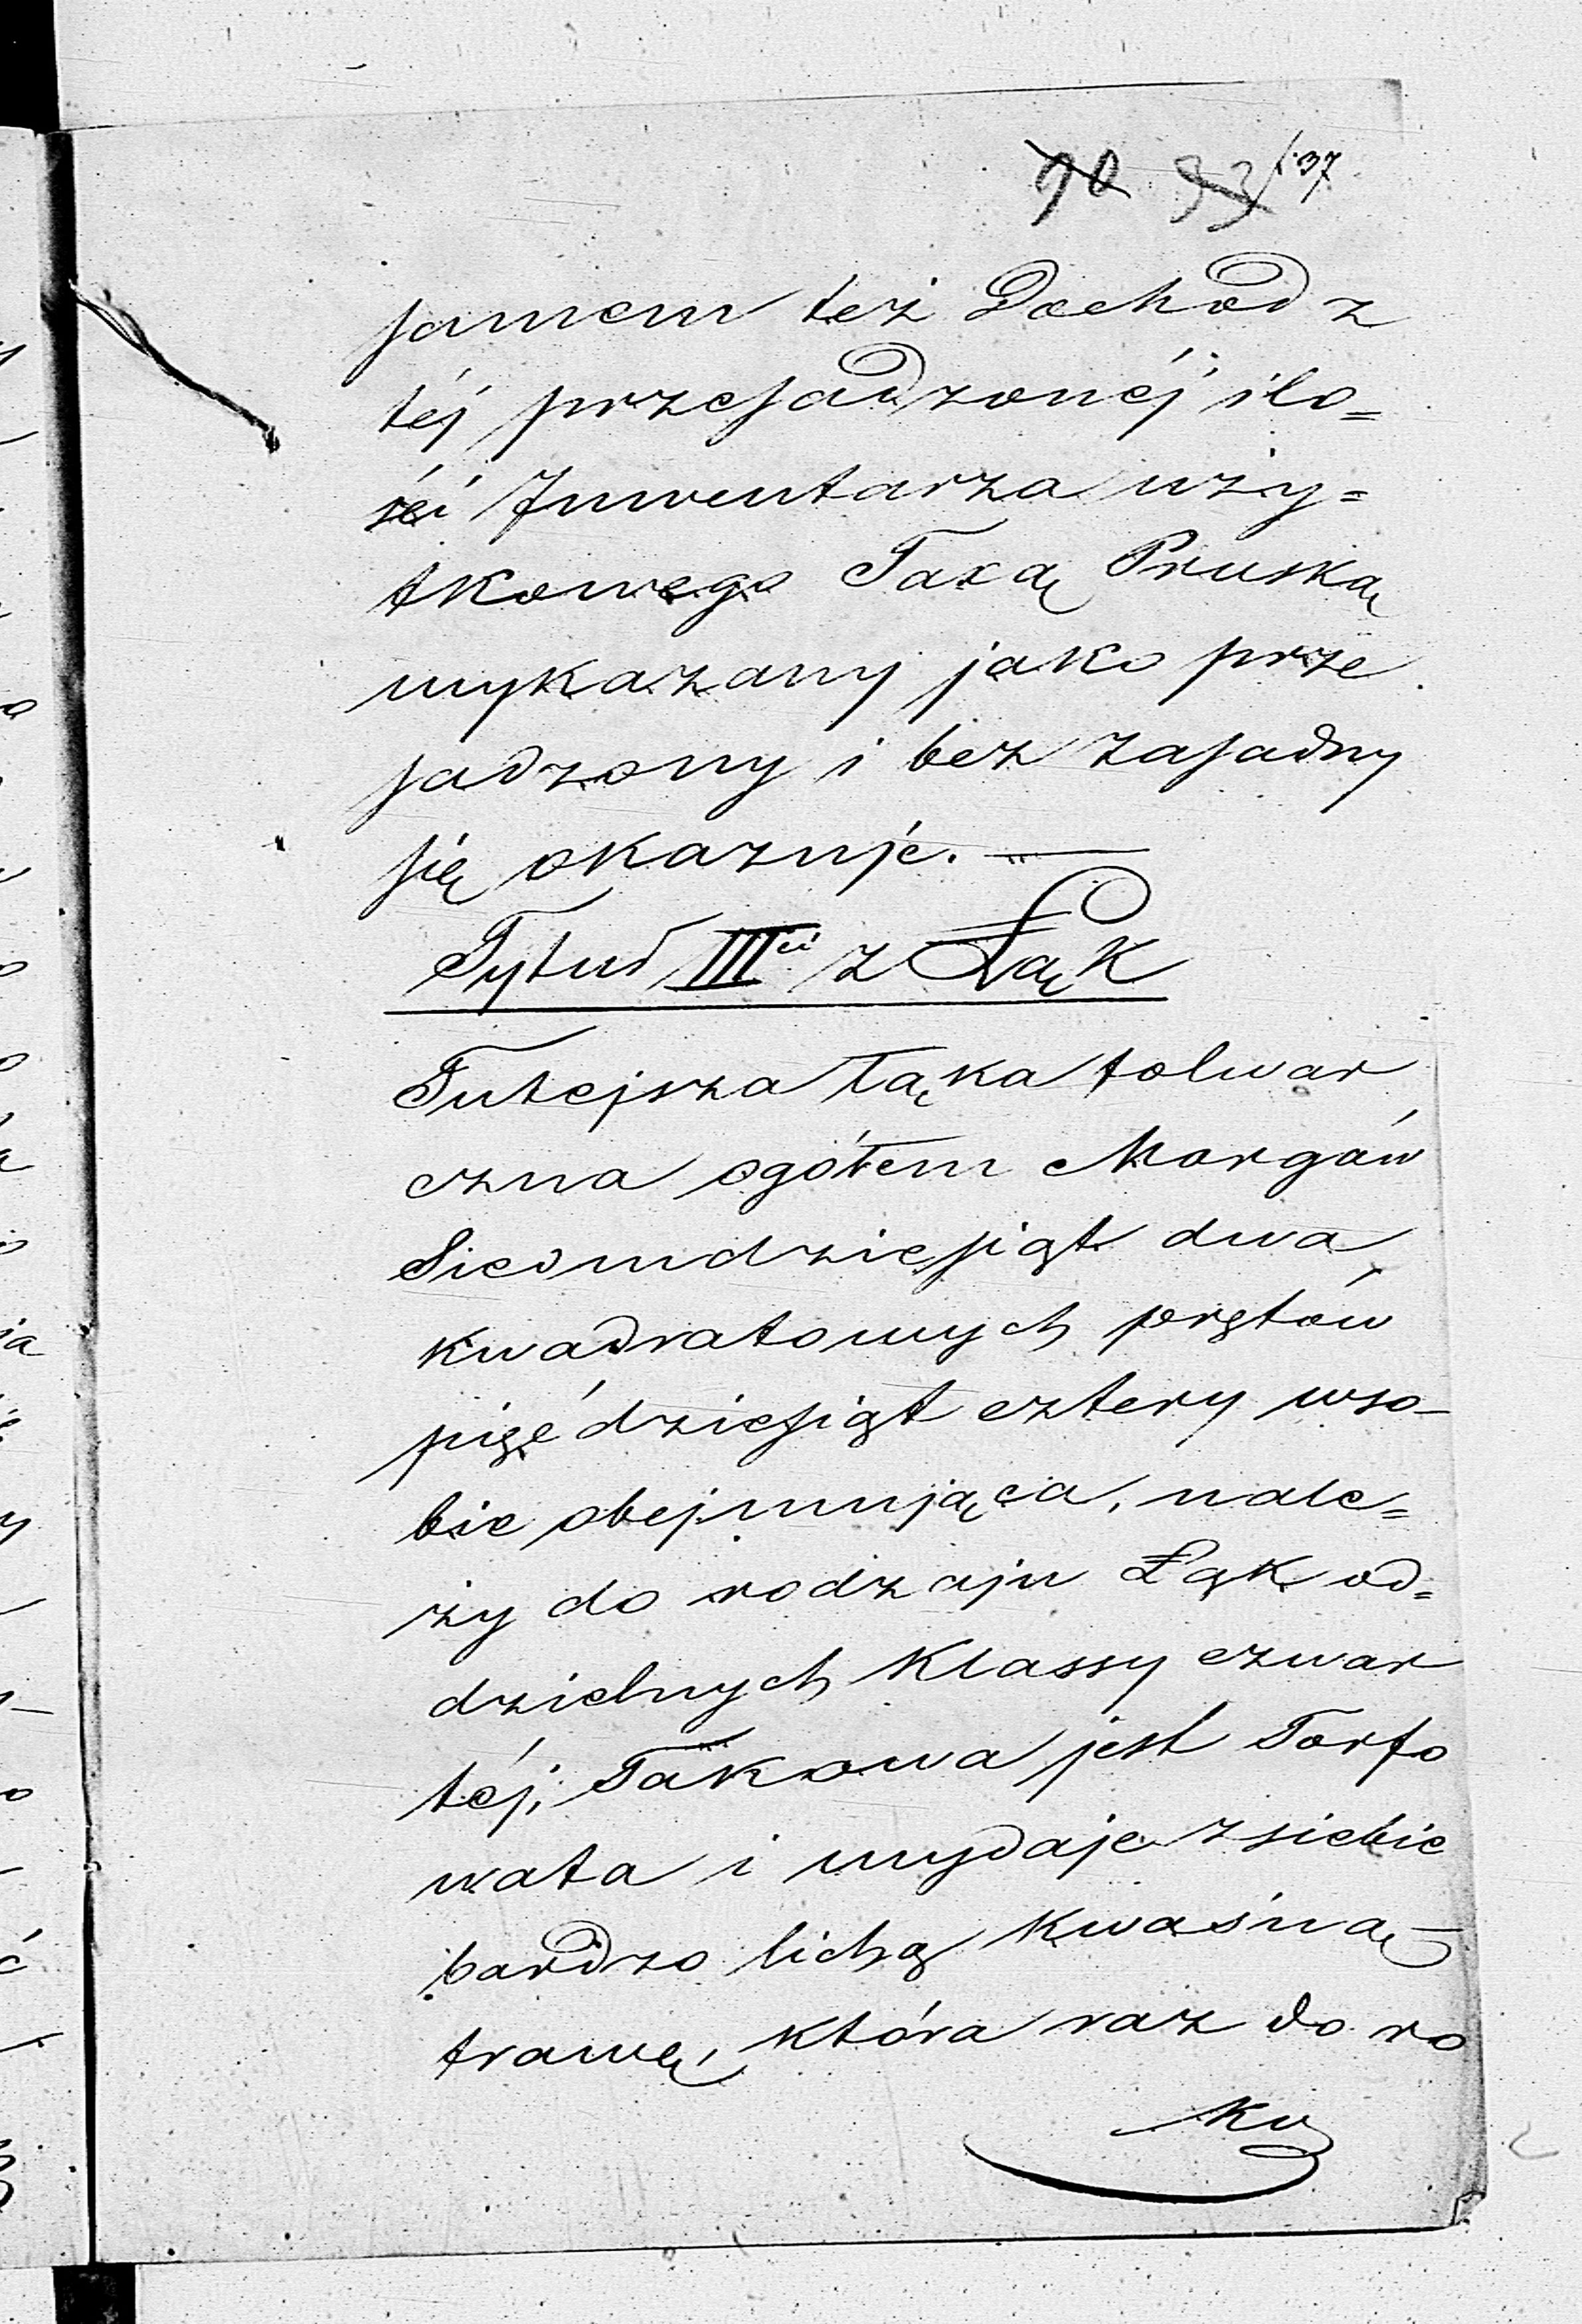 90 93 137
samem też Dochod z
téj przesadzonéj ilo=
ści Inwentarza uży=
tkowego Taxą Pruską
wykazany jako prze
sadzony i bez zasadny
się okazuje. —
Tytuł IIIci z Łąk
Tutejsza łąka folwar
czna ogółem Morgów
Siedmdziesiąt dwa
kwadratowych prętów
pięćdziesiąt cztery wso-
bie obejmująca, nale=
ży do rodzaju Łąk od=
dzielnych Klassy czwar
téj, Takowa jest Torfo
wata i wydaje zsiebie
bardzo lichą kwaśną
trawę, która raz do ro
ku